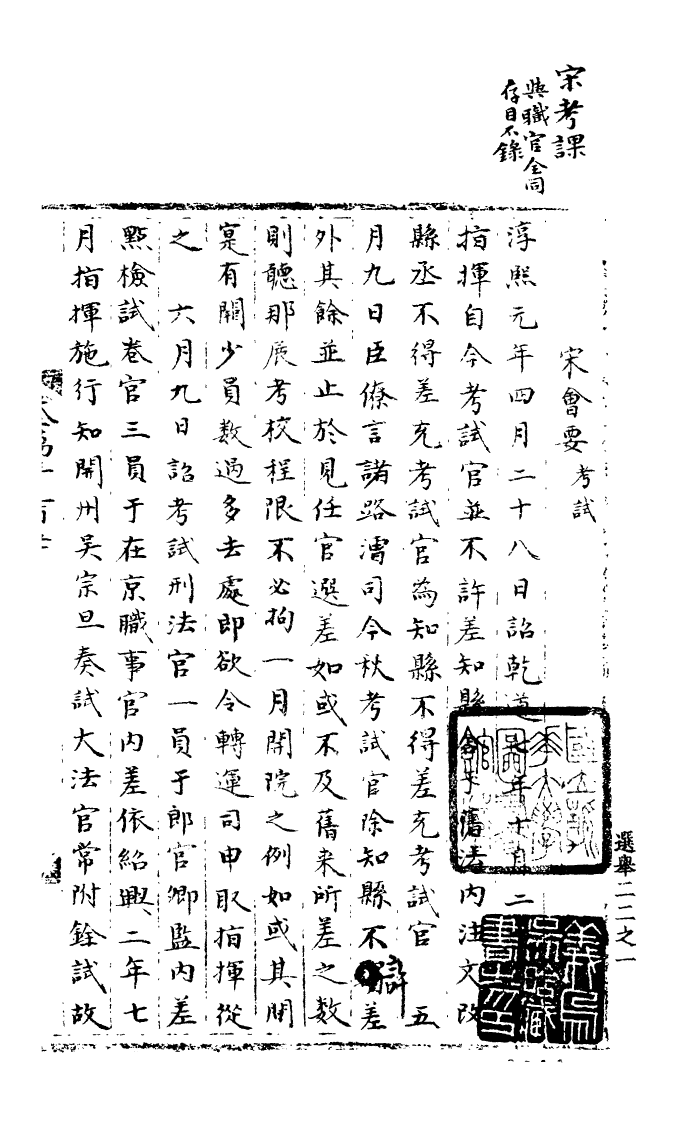 宋考課
與職官全同
存目不錄
宋會要
考試
淳熙元年四月二十八日詔乾道七年十月二
指揮自今考試官並不許差知縣令于舊法內注文改
縣丞不得差充考試官為知縣不得差充考試官　五
月九日臣僚言諸路漕司今秋考試官除知縣不許差
外其餘並止於見任官選差如或不及舊来所差之數
則聽那展考校程限不必拘一月開院之例如或其間
寔有闕少員數過多去處即欲令轉運司申取指揮從
之　六月九日詔考試刑法官一員于郎官卿監内差
點檢試卷官三員于在京職事官内差依紹興二年七
月指揮施行知開州吴宗旦奏試大法官常附銓試故
選舉二二之一